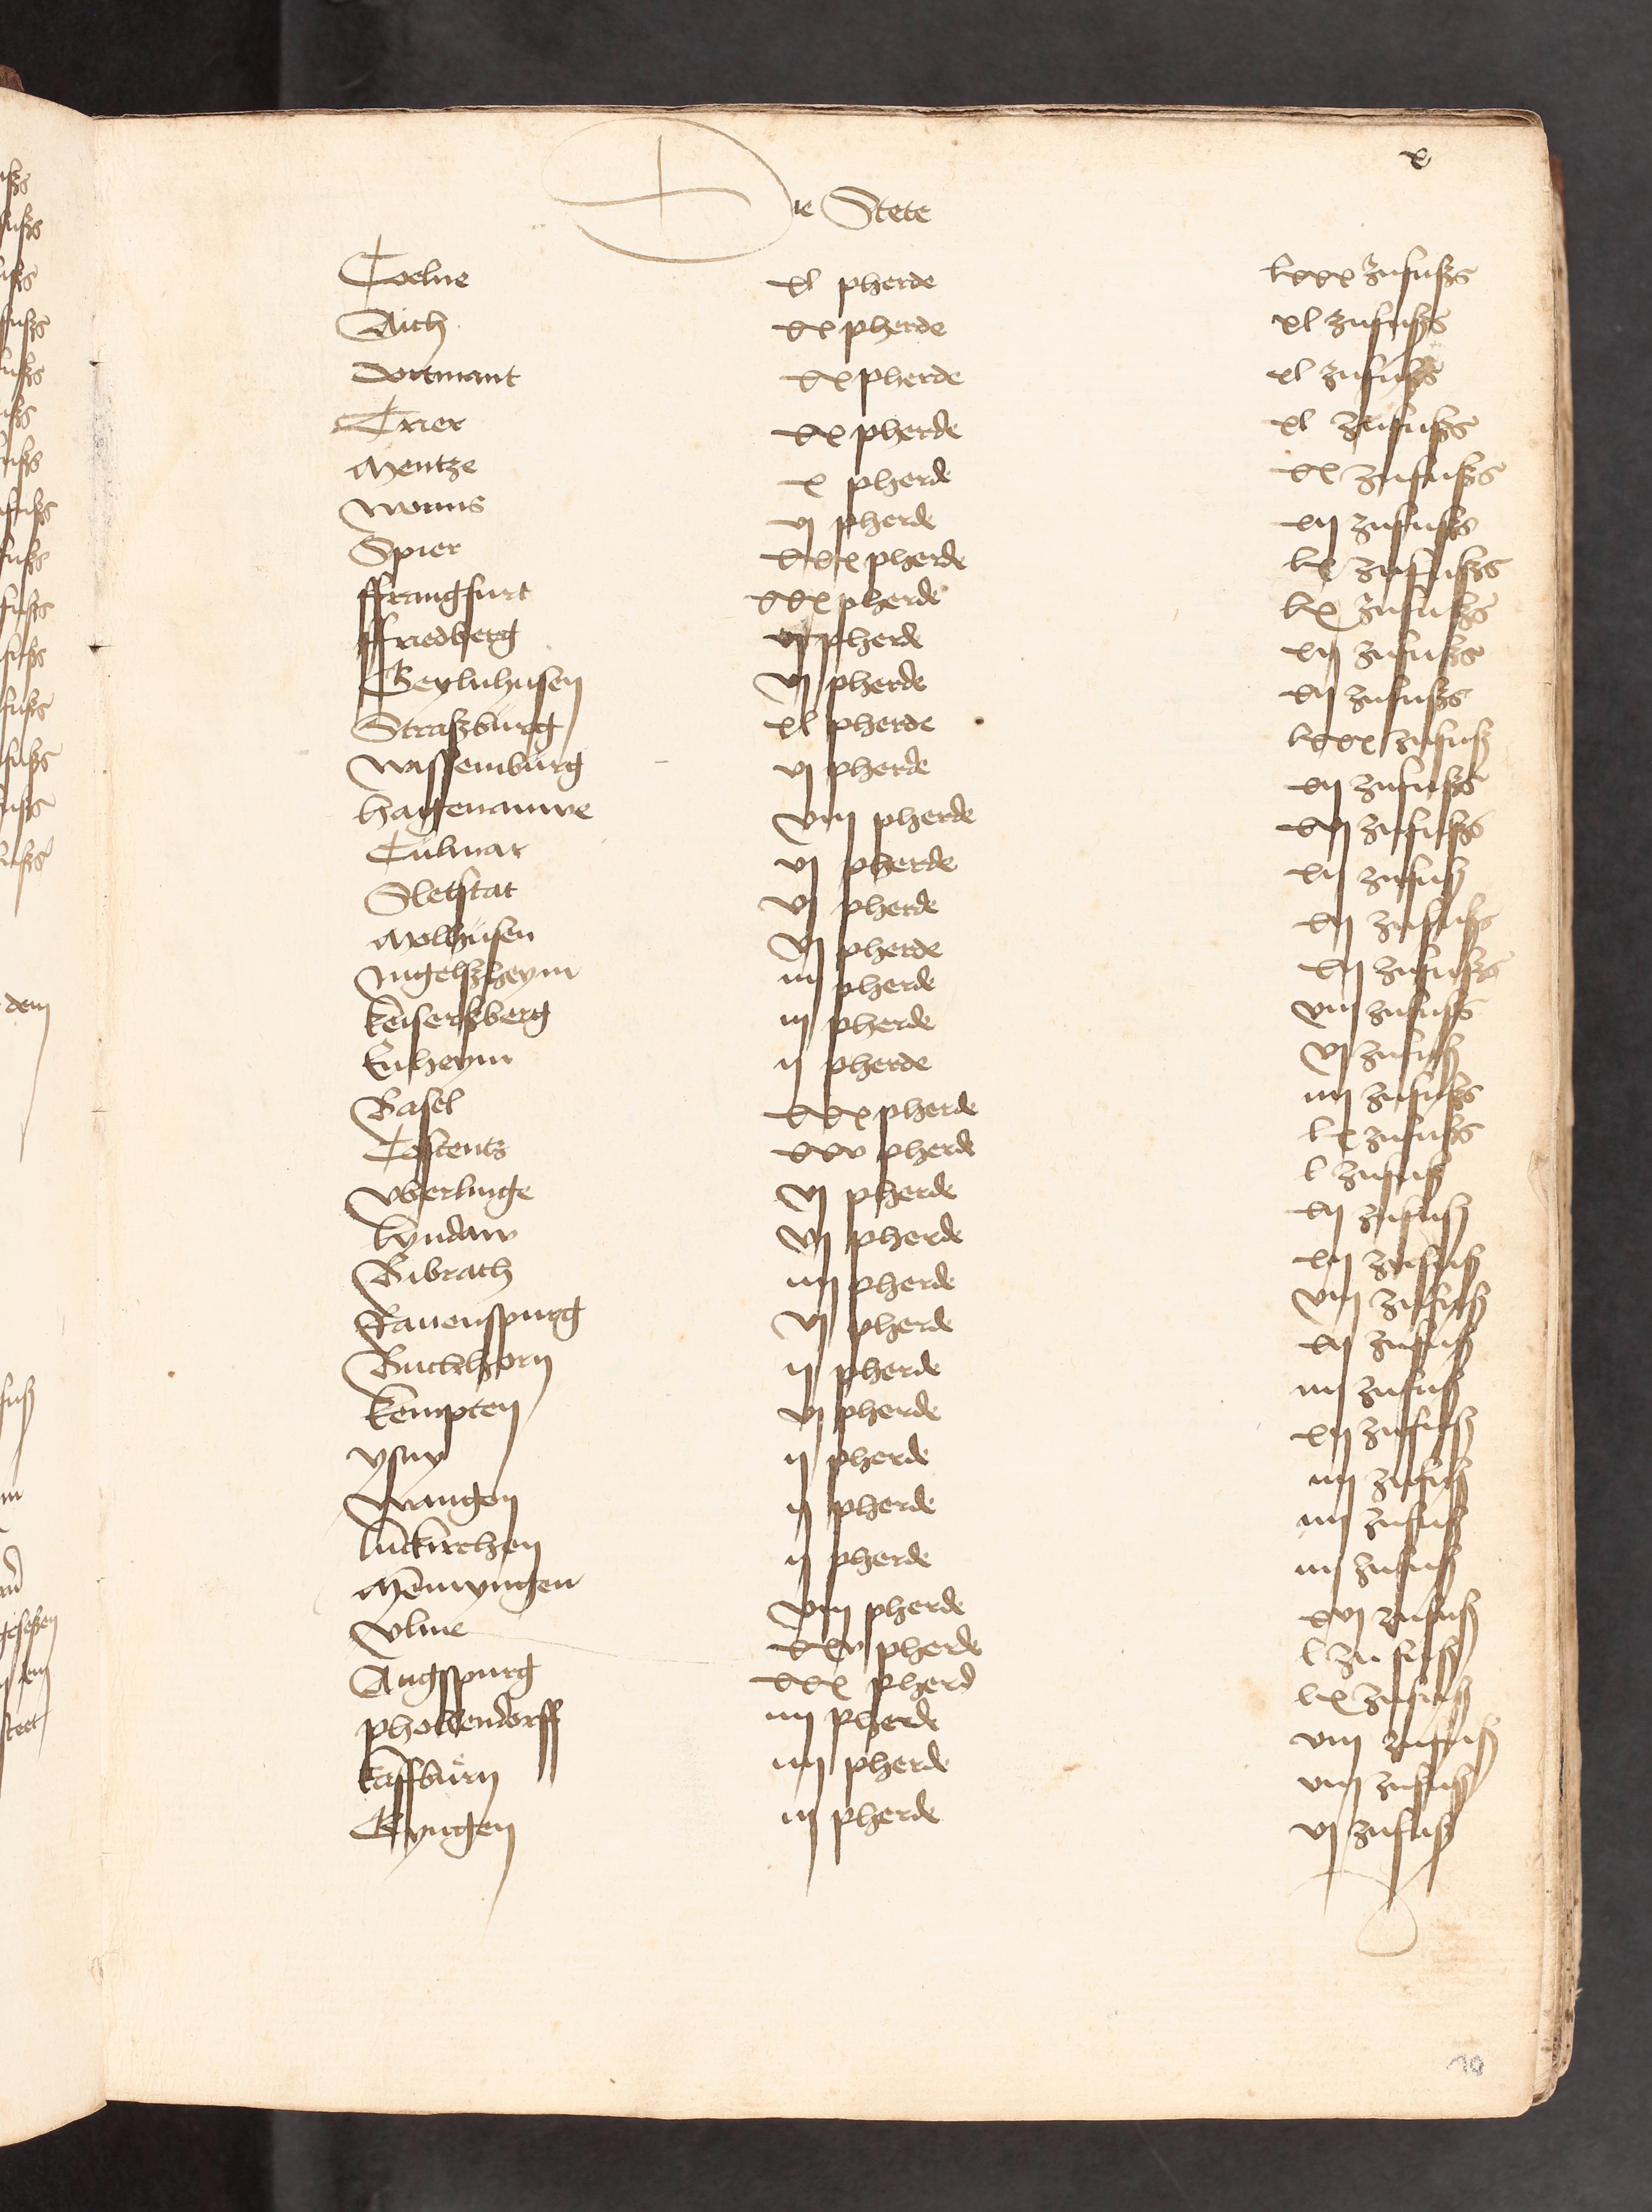 x
Die Stete
Coelne xl pherde lxxx zufuszs
Aich xx pherde xl zufuszs
Dortmant xx pherde xl zufuszs
Trier xx pherde xl zufuszs
Mentze x pherde xx zufuszs
Worms vj pherde xij zufuszs
Spier xxx pherde lx zufuszs
ffrangfurt xxx pherde lx zufuszs
ffriedberg vj pherde xij zufuszs
Geylnhusen vj pherde xij zufuszs
Straszburg xl pherde lxxx zufusz
Wissemburg vj pherde xij zufuszs
hagenauwe viij pherde xvj zufuszs
Culmar vj pherde xij zufusz
Sletstat vj pherde xij zufuszs
Molhusen vj pherde xij zufuszs
Ingelszheym iiij pherde viij zufuszs
keiserszberg iij pherde vj zufusz
Enheym ij pherde iiij zufuszs
Basel xxx pherde lx zufuszs
Costentz xxv pherde l zufusz
Vberlinge vj pherde xij zufusz
lyndaw vj pherde xij zufusz
Bibrach iiij pherde viij zufusz
Rauenspurg vj pherde xij zufusz
Buchhorn ij pherde iiij zufusz
kempten vj pherde xij zufusz
ysny ij pherde iiij zufusz
Wangen ij pherde iiij zufusz
luckirchen ij pherde iiij zufusz
Memyngen viij pherde xvj zufusz
Vlme xxv pherde l zu fusz
Augspurg xxx pherd lx zufusz
phollendorff iiij pherde viij zufusz
kaffburn iiij pherde viij zufusz
Gyngen iij pherde vj zufusz
10